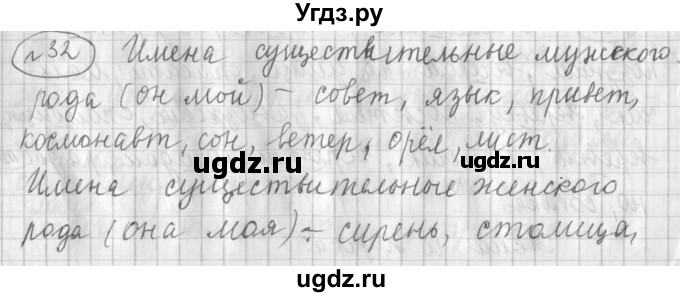 Угдз.ру
№32 Имена существительные мужского
рода (он мой) - совет, язык, привет,
космонавт, сон, ветер, орёл, лист.
Имена существительные женского
рода (она моя) - сирень, столица,
©ugdz.ru
ugdz.ru